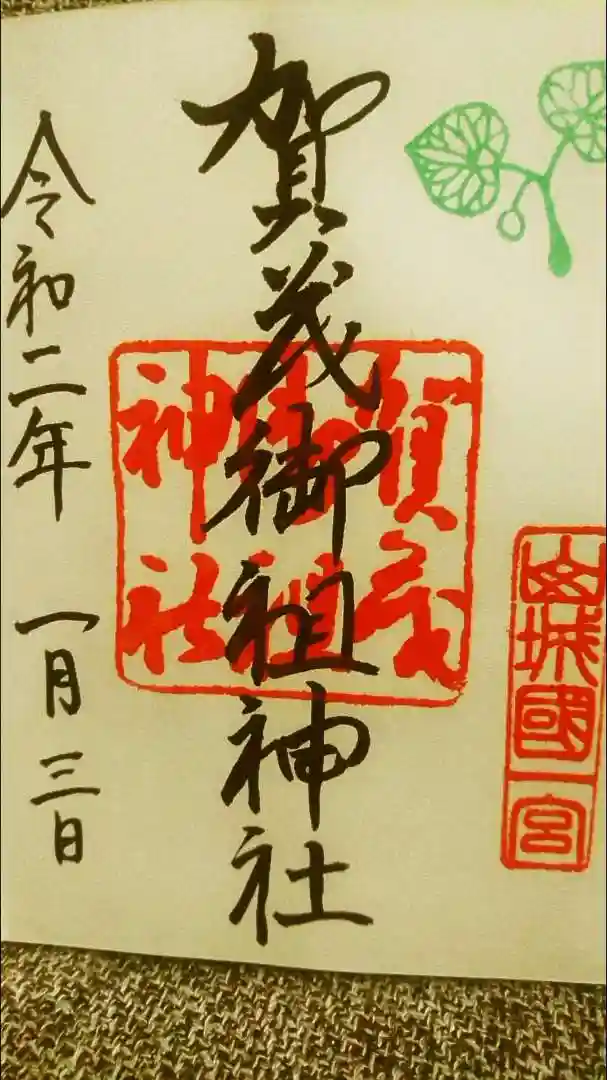 山城國一宮
賀茂御祖神社
賀茂
御祖
神社
令和二年 一月三日